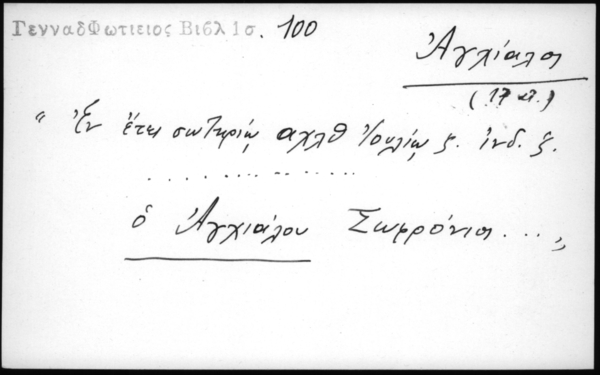 ΓενναδΦωτιειος Βιβλ 1σ. 100
Ἀγχίαλος
(17 αι.)
" Ἐν ἔτει σωτηρίῳ αχλθ Ἰουλίῳ ζ. ἰνδ. ζ.
. . . . . . . . . . . . . . .
ὁ Ἀγχιάλου Σωφρόνιος . . . "